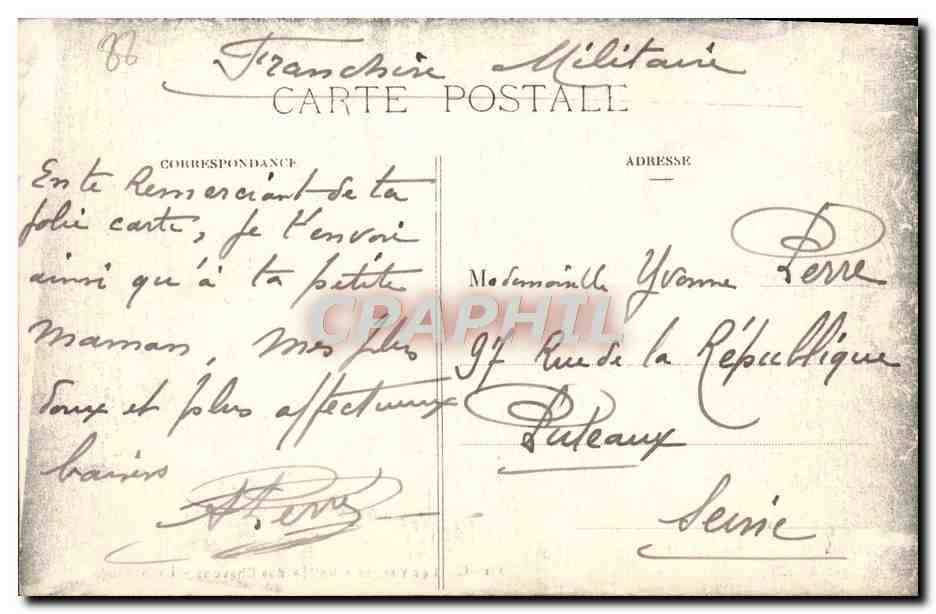 88
Franchise Militaire
CARTE POSTALE
CORRESPONDANCE
En te Remerciant de ta
jolie carte, je t'envoie
ainsi qu'à ta petite
Maman, mes plus
doux et plus affectueux
baisers
APerre
ADRESSE
Mademoiselle Yvonne Perre
97 Rue de la République
Puteaux
Seine
CPARPHIL